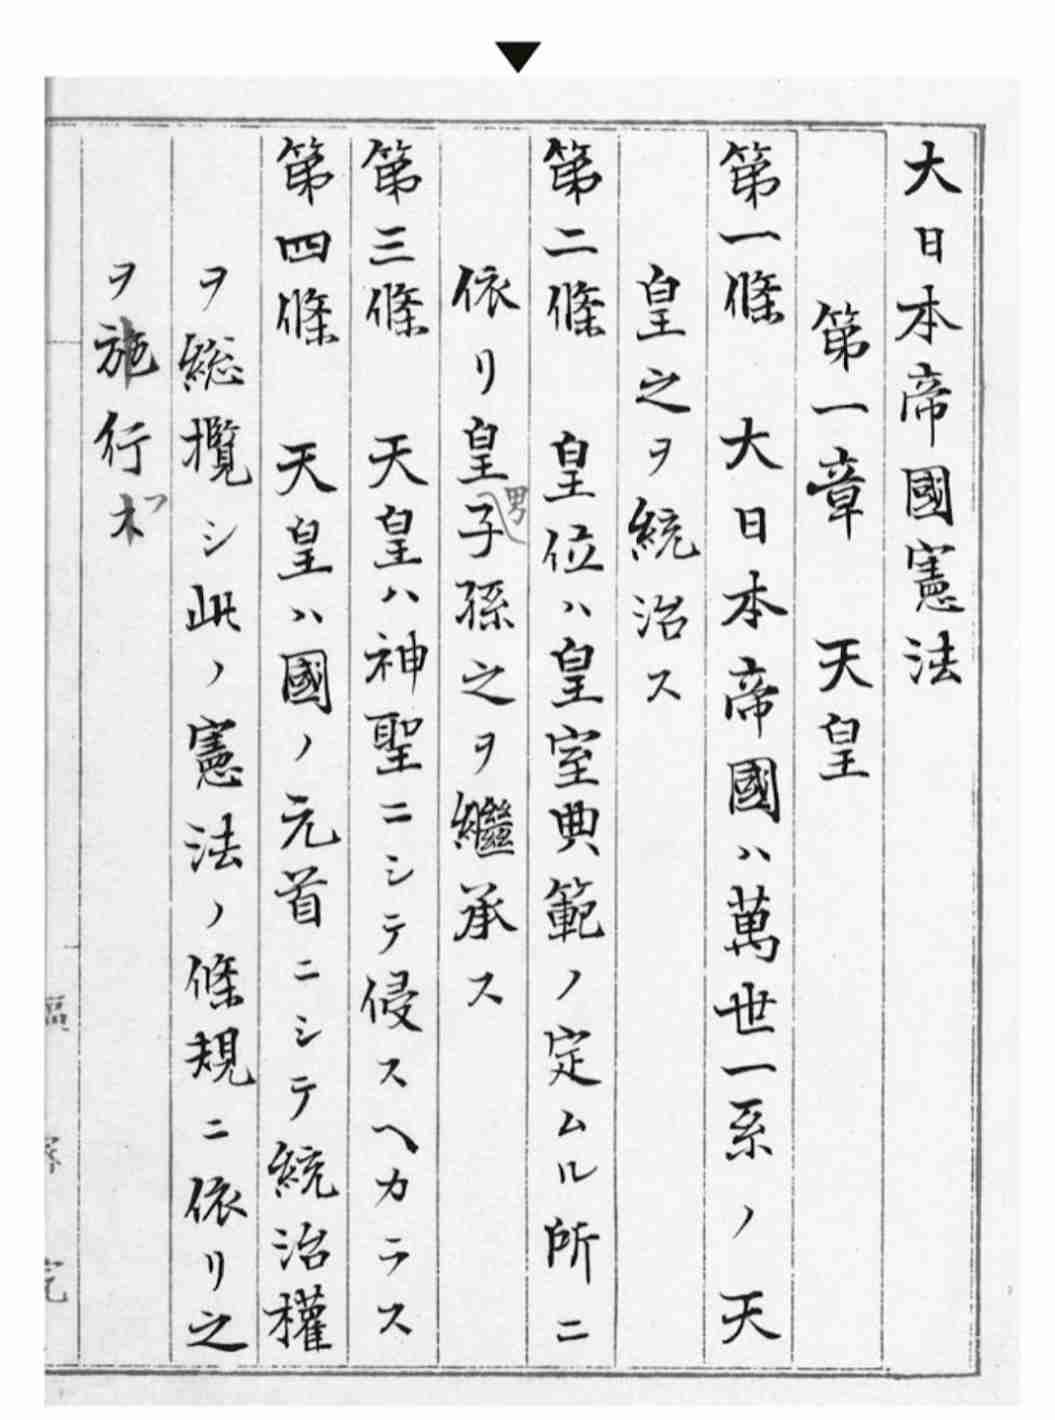 大日本帝國憲法
第一章 天皇
第一條 大日本帝國ハ萬世一系ノ天
皇之ヲ統治ス
第二條 皇位ハ皇室典範ノ定ムル所ニ
依リ皇子孫之ヲ繼承ス
男
第三條 天皇ハ神聖ニシテ侵スヘカラス
第四條 天皇ハ國ノ元首ニシテ統治權
ヲ総攬シ此ノ憲法ノ條規ニ依リ之
ヲ施行